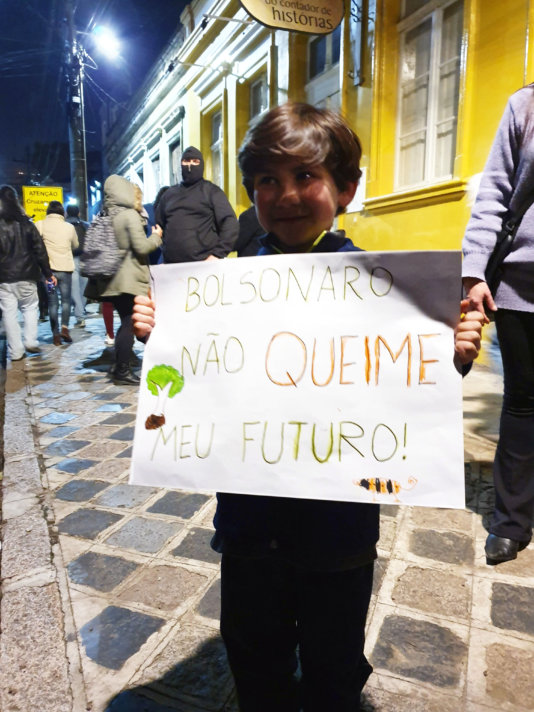 do contador de
histórias
ATENÇÃO
BOLSONARO
NÃO QUEIME
MEU FUTURO!